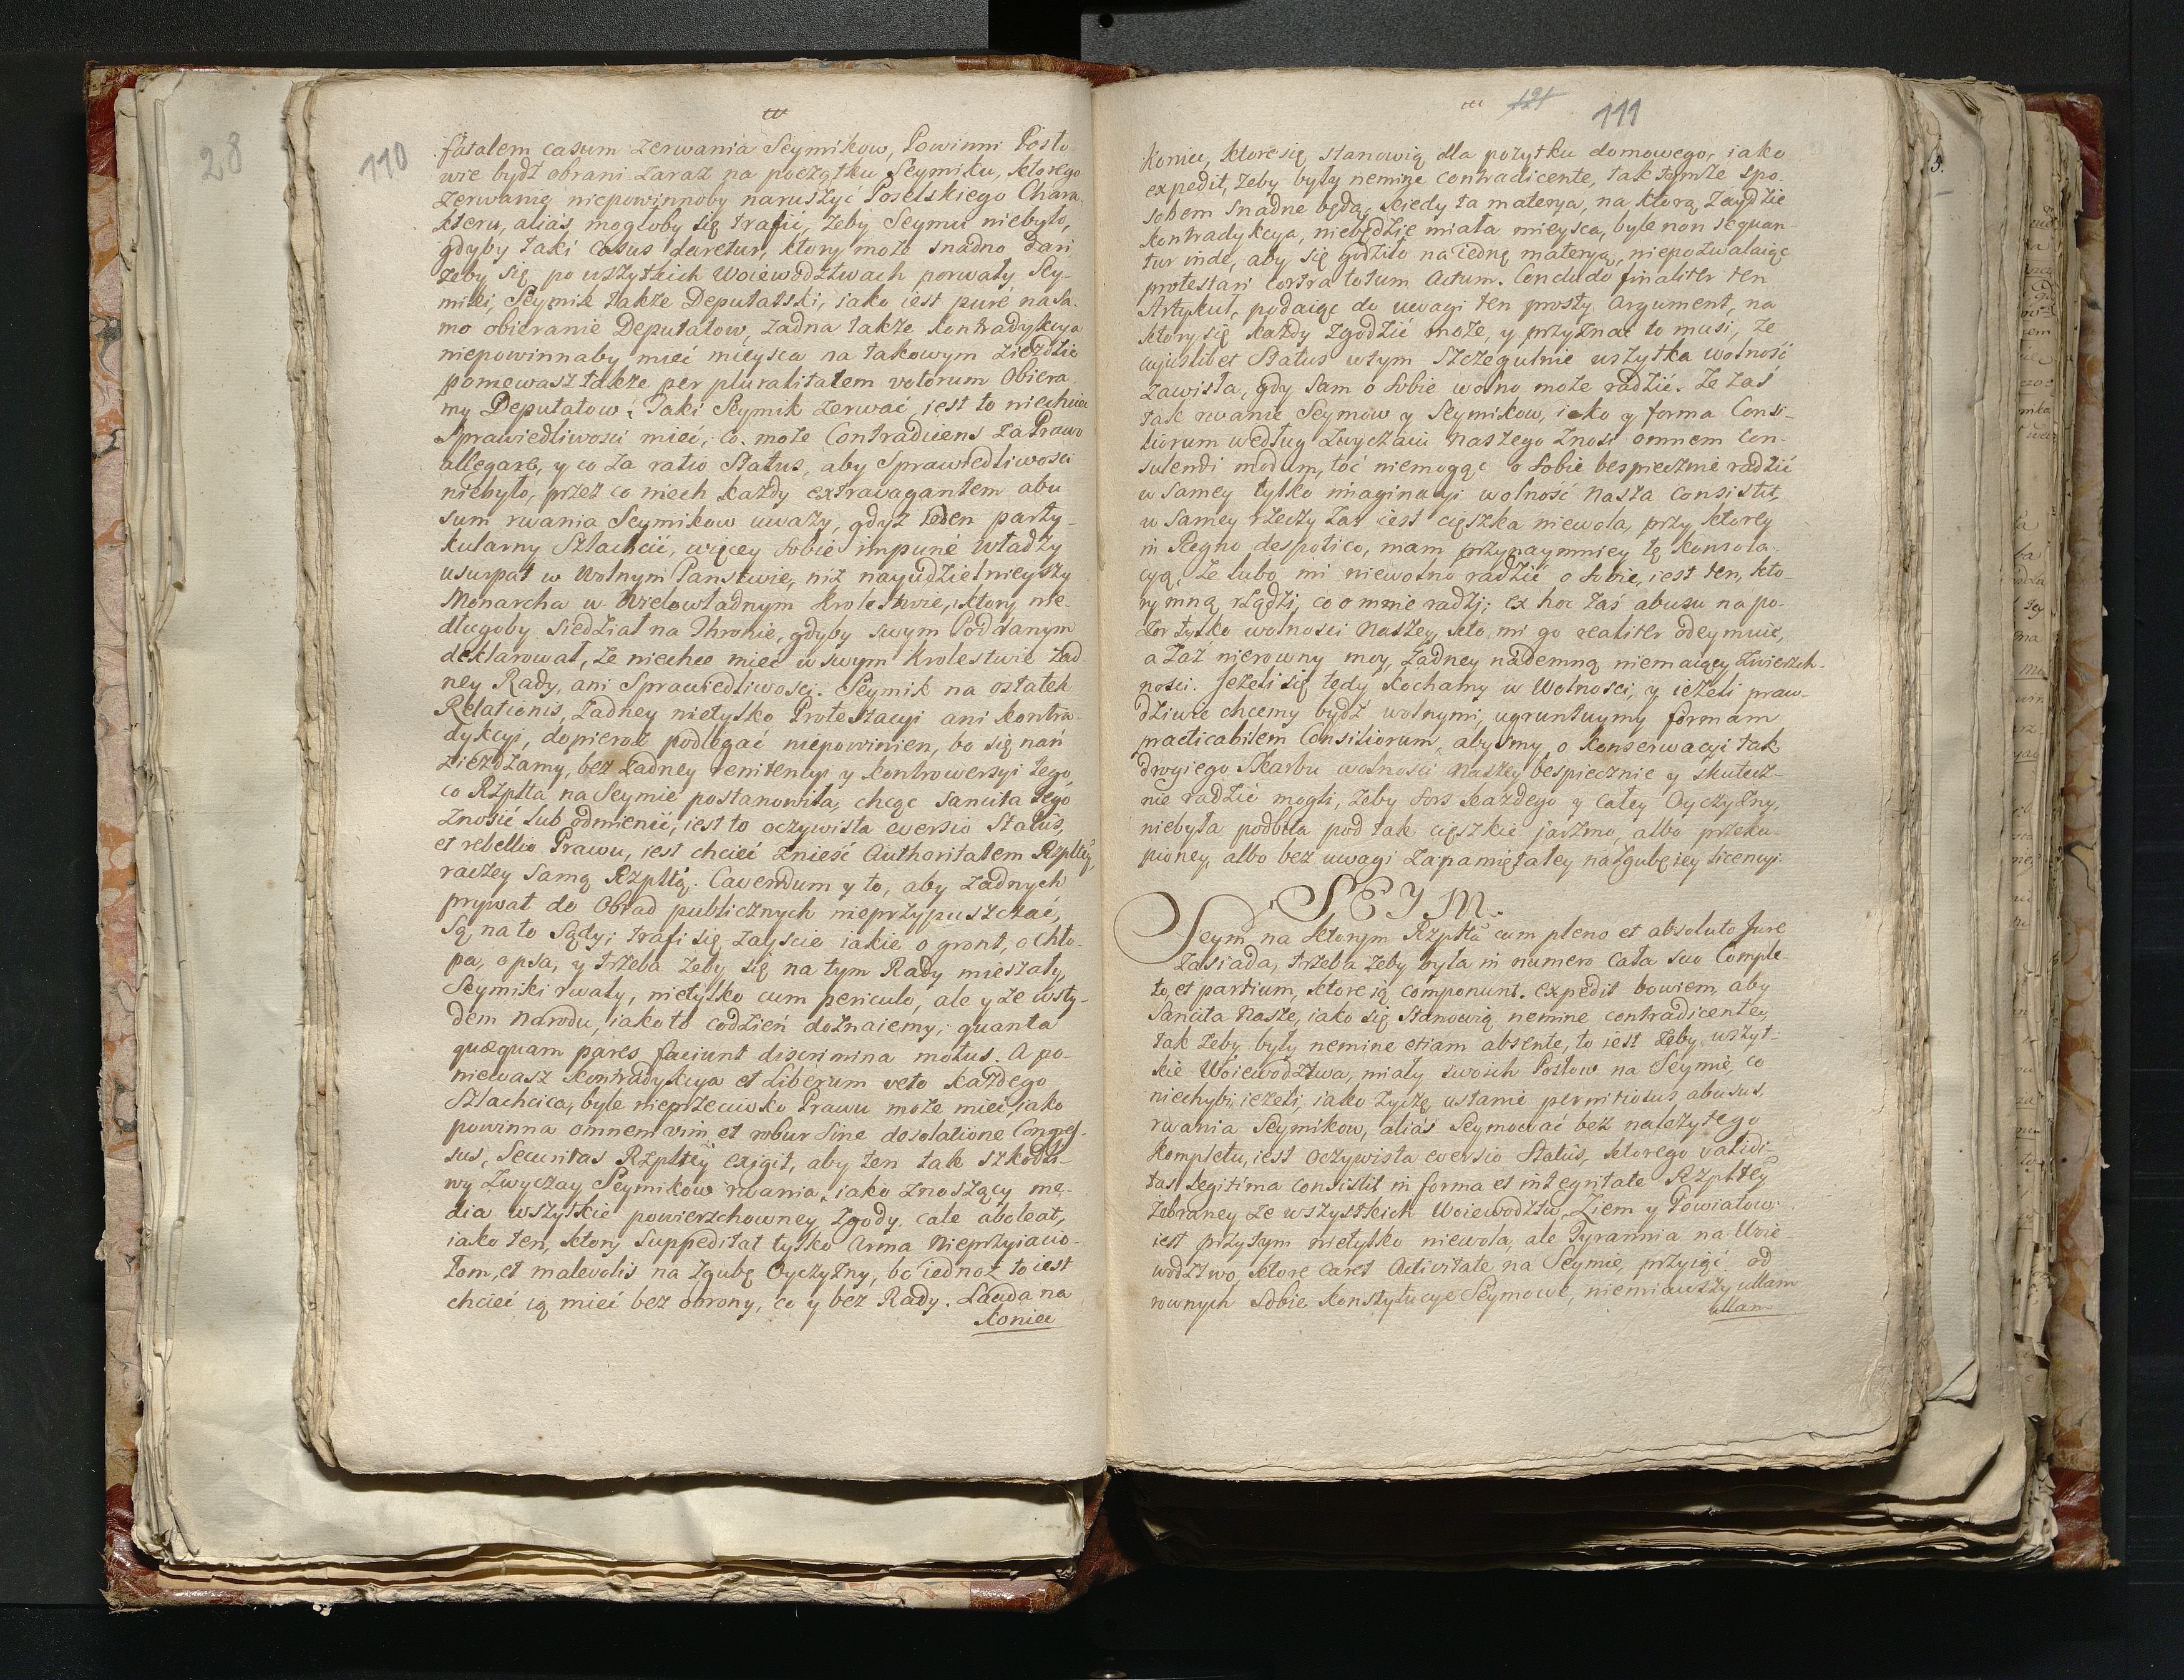 28
110
fatalem casum zerwania Seymikow, Powinni Posło
wie bydź obrani zaraz na początku Seymiku, ktorego
zerwanie niepowinnoby naruszyć Poselskiego Chara-
kteru, alias mogłoby się trafić, żeby Seymu niebyło,
gdyby taki casus daretur, ktory może snadno dari
żeby się po wszytkich Woiewodztwach porwały Sey-
miki, Seymik także Deputatski, iako iest purè na sa-
mo obieranie Deputatow, żadna także kontradykcya
niepowinnaby mieć mieysca na takowym zieździe
ponieważ także per pluralitatem votorum Obiera
my Deputatow; Taki Seymik zerwać, iest to niechcieć
Sprawiedliwosci mieć, co może Contradicens za Prawo
allegare, y co za ratio Status, aby Sprawiedliwosci
niebyło, przez co niech każdy extravagantem abu
sum rwania Seymikow uważy, gdyż ieden party-
kularny Szlachcic, więcey sobie impunè władzy
usurpat w Wolnym Panstwie, niż nayudzielnieyszy
Monarcha w Wielowładnym Krolestwie, ktory nie-
długoby siedział na Thronie, gdyby swym Poddanym
deklarował, że niechce mieć w swym Krolestwie żad-
ney Rady, ani Sprawiedliwosci. Seymik na ostatek
Relationis, żadney nietylko Protestacyi ani kontra-
dykcyi, dopieroż podlegać niepowinien, bo się nań
zieżdżamy, bez żadney renitencyi y kontrowersyi tego,
co Rzplta na Seymie postanowiła, chcąc sancita tego
znosić lub odmienić, iest to oczywista eversio Status,
et rebellio Prawu, iest chcieć znieść Authoritatem Rzpltey,
raczey samą Rzpltą. Cavendum y to, aby żadnych
prywat do Obrad publicznych nieprzypuszczać,
Są na to Sądy; trafi się zayscie iakie o gront, o chło-
pa, o psa, y trzeba żeby się na tym Rady mieszały,
Seymiki rwały, nietylko cum periculo, ale y ze wsty-
dem Narodu, iako to codzień doznaiemy; quanta
quæquam pares faciunt discrimina motus. A po-
niewasz kontradykcya et Liberum veto każdego
Szlachcica, byle nieprzeciwko Prawu może mieć, iako
powinna omnem vim et robur sine desolatione Congres-
sus, Securitas Rzpltey exigit, aby ten tak szkodli-
wy Zwyczay Seymikow rwania, iako znoszący me-
dia wszytkie powierzchowney Zgody, cale aboleat,
iako ten, ktory suppeditat tylko arma Nieprzyiacio-
łom, et malevolis na zgubę Oyczyzny, bo iednoż to iest
chcieć ią mieć bez obrony, co y bez Rady. Lauda na
koniec
121
111
koniec, ktore się stanowią dla pożytku domowego, iako
expedit, żeby były nemine contradicente, tak tymże spo-
sobem snadne będą, kiedy ta materya, na ktorą zaydzie
kontradykcya, niebędzie miała mieysca, byle non sequan-
tur inde, aby się godziło na iednę materyą, niepozwalaiąc
protestari contra totum actum. Concludo finaliter ten
Artykuł, podaiąc do uwagi ten prosty argument, na
ktory się każdy zgodzić może, y przyznać to musi, że
cujuslibet Status w tym szczegulnie wszytka wolność
zawisła, gdy sam o sobie wolno może radzić. Że zaś
tak rwanie Seymow y Seymikow, iako y forma Consi-
liorum według Zwyczaiu Naszego znosi omnem Con-
sulendi modum, toć niemogąc o sobie bespiecznie radzić
w samey tylko imaginacyi wolność nasza consistit,
w samey rzeczy zaś iest cięszka niewola, przy ktorey
in Regno despotico, mam przynaymniey tę konsola-
cyą, że lubo mi niewolno radzić o sobie, iest ten, kto-
ry mną rządzi, co o mnie radzi; ex hoc zaś abusu na po-
zor tylko wolnosci Naszey, kto mi go realiter odeymuie,
a zaż nierowny moy, żadney nademną niemaiący zwierzch-
nosci. Jeżeli się tedy kochamy w Wolnosci, y ieżeli praw-
dziwie chcemy bydź wolnymi, ugruntuymy formam
practicabilem Consiliorum, abyśmy o konserwacyi tak
drogiego Skarbu wolnosci Naszey bespiecznie y skutecz-
nie radzić mogli, żeby sors każdego y całey Oyczyzny,
niebyła podbita pod tak cięszkie jarzmo, albo przeku-
pioney, albo bez uwagi zapamiętałey na Zgubę iey licencyi.
SEYM.
Seym na ktorym Rzpltа cum pleno et absoluto Jure
zasiada, trzeba żeby była in numero cała suo Comple-
to, et partium, ktore ią componunt. Expedit bowiem aby
Sancita Nasze, iako się stanowią nemine contradicente,
tak żeby były nemine etiam absente, to iest żeby wszyt-
kie Woiewodztwa, miały swoich Posłow na Seymie, co
niechybi, ieżeli, iako życzę, ustanie perniciosus abusus
rwania Seymikow, alias Seymować bez należytego
kompletu, iest oczywista eversio Status, ktorego validi-
tas legitima consistit in forma et integritate Rzpltey
zebraney ze wszystkich Woiewodztw, Ziem y Powiatow:
iest przytym nietylko niewola, ale Tyrannia na Woie
wodztwo, ktore caret Activitate na Seymie, przyiąć od
rownych sobie Konstytucye Seymowe, niemiawszy ullam
ullam